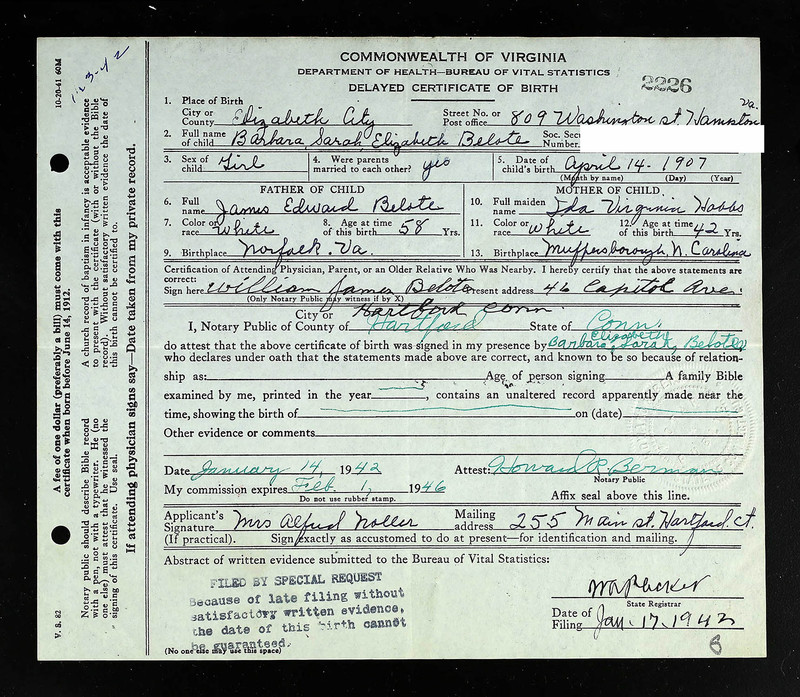 COMMONWEALTH OF VIRGINIA
DEPARTMENT OF HEALTH—BUREAU OF VITAL STATISTICS
DELAYED CERTIFICATE OF BIRTH
2226
1. Place of Birth
City or County Elizabeth City Street No. or Post office 809 Washington st. Hampton Va.
2. Full name of child Barbara Sarah Elizabeth Belote Soc. Sec Number
3. Sex of child Girl 4. Were parents married to each other? yes 5. Date of child's birth April 14 - 1907
(Month by name) (Day) (Year)
FATHER OF CHILD MOTHER OF CHILD
6. Full name James Edward Belote 10. Full maiden name Ida Virginia Hobbs
7. Color or race White 8. Age at time of this birth 58 Yrs. 11. Color or race White 12. Age at time of this birth 42 Yrs.
9. Birthplace Norfolk. Va. 13. Birthplace Muffersborough, N. Carolina
Certification of Attending Physician, Parent, or an Older Relative Who Was Nearby. I hereby certify that the above statements are
correct:
Sign here William James Belote Present address 46 Capitol Ave.
(Only Notary Public may witness if by X)
Hartford Conn
City or
I, Notary Public of County of Hartford State of Conn.
do attest that the above certificate of birth was signed in my presence by Barbara Elizabeth Sarah Belote
who declares under oath that the statements made above are correct, and known to be so because of relation-
ship as: Age of person signing A family Bible
examined by me, printed in the year , contains an unaltered record apparently made near the
time, showing the birth of on (date)
Other evidence or comments
Date January 14, 1942 Attest: Howard R. Berman
Notary Public
My commission expires Feb. 1, 1946 Affix seal above this line.
Do not use rubber stamp.
Applicant's Signature Mrs Alfred Noller Mailing address 255 Main st. Hartford. Ct.
(If practical). Sign exactly as accustomed to do at present—for identification and mailing.
Abstract of written evidence submitted to the Bureau of Vital Statistics:
FILED BY SPECIAL REQUEST
Because of late filing without
satisfactory written evidence,
the date of this birth cannot
be guaranteed.
(No one else may use this space)
W A Plecker
State Registrar
Date of Filing Jan. 17, 1942
1-23-42
10-20-41 60M
A fee of one dollar (preferably a bill) must come with this
certificate when born before June 14, 1912.
A church record of baptism in infancy is acceptable evidence
to present with the certificate (with or without the Bible
record). Without satisfactory written evidence the date of
this birth cannot be certified to.
If attending physician signs say—Date taken from my private record.
Notary public should describe Bible record
with a pen, not with a typewriter. He (no
one else) must attest that he witnessed the
signing of this certificate. Use seal.
V. S. 82